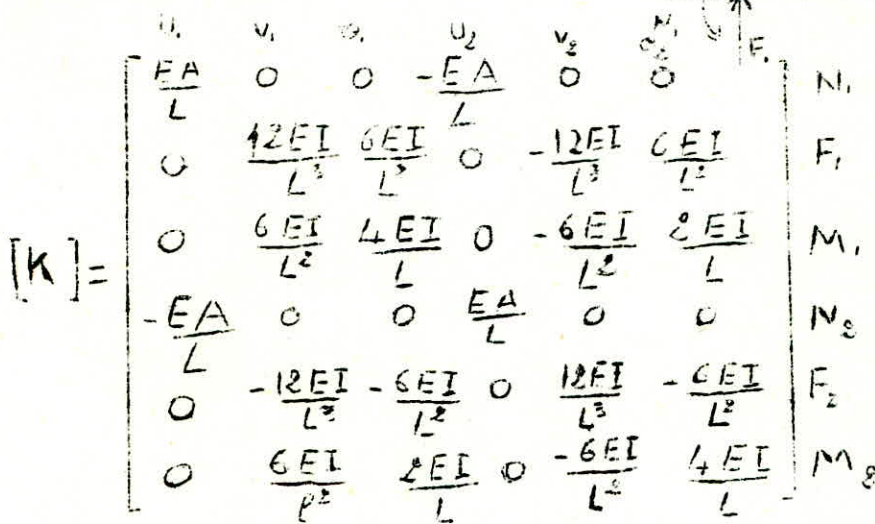 U₁ V₁ θ₁ U₂ V₂ θ₂ N₁ F₁
EA/L 0 0 -EA/L 0 0 N₁
0 12EI/L³ 6EI/L² 0 -12EI/L³ 6EI/L² F₁
[K]= 0 6EI/L² 4EI/L 0 -6EI/L² 2EI/L M₁
-EA/L 0 0 EA/L 0 0 N₂
0 -12EI/L³ -6EI/L² 0 12EI/L³ -6EI/L² F₂
0 6EI/ℓ² 2EI/L 0 -6EI/L² 4EI/L M₂